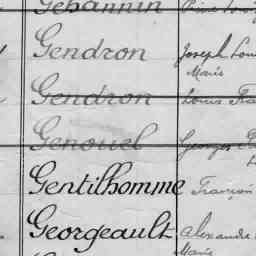 Gehannin
Gendron Joseph Lou
Marie
Gendron Louis Fra
Genouel Georges
Gentilhomme François
Georgeault Alexandre
Marie